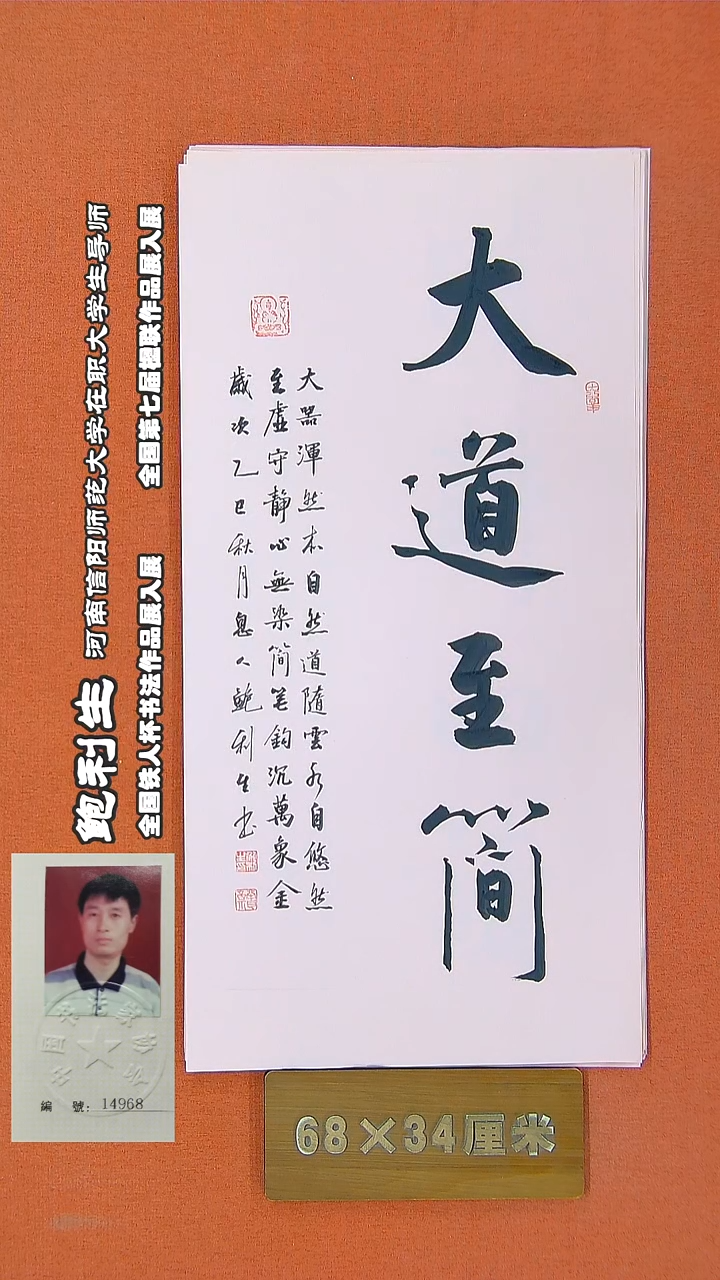 大道至简
大器渾然本自然道隨雲水自悠然
至虛守静心無染简笔鈞沉萬象金
歲次乙巳秋月息人鲍利生书
鲍利生 河南信阳师范大学在职大学生导师
全国铁人杯书法作品展入展 全国第七届楹联作品展入展
編 號：14968
68×34厘米